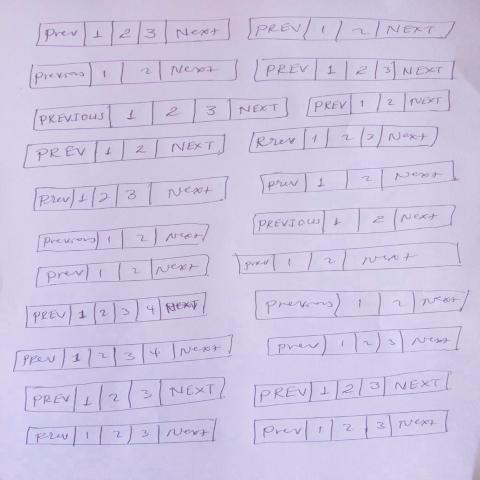 Prev 1 2 3 Next
PREV 1 2 NEXT
Previous 1 2 Next
PREV 1 2 3 NEXT
PREVIOUS 1 2 3 NEXT
PREV 1 2 NEXT
PREV 1 2 NEXT
Prev 1 2 3 Next
Prev 1 2 3 Next
prev 1 2 Next
Previous 1 2 Next
PREVIOUS 1 2 Next
Prev 1 2 Next
prev 1 2 Next
PREV 1 2 3 4 NEXT
previous 1 2 Next
Prev 1 2 3 4 Next
prev 1 2 3 Next
PREV 1 2 3 NEXT
PREV 1 2 3 NEXT
Prev 1 2 3 Next
Prev 1 2 3 Next